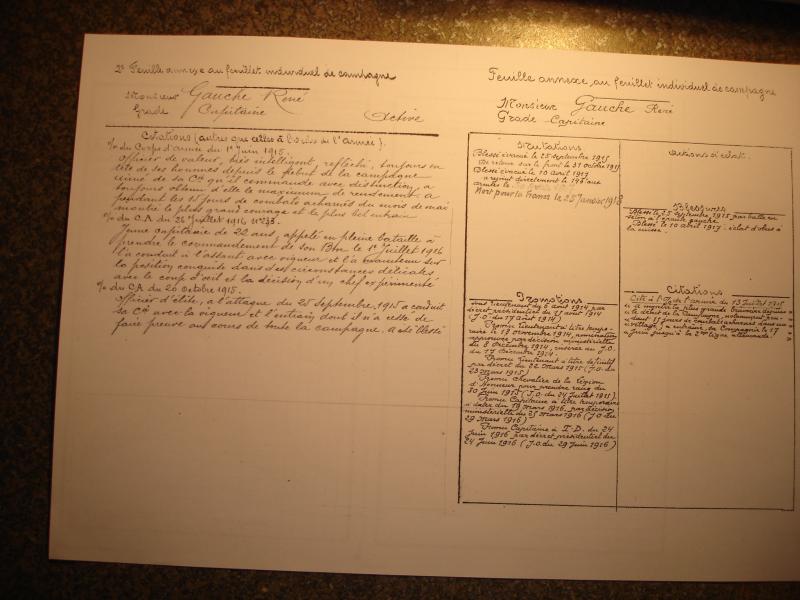 2e Feuille annexe au feuillet individuel de campagne
Monsieur Gauche René
Grade Capitaine Active
Citations (autres que celles à l'ordre de l'Armée).
O/ du Corps d'Armée du 1er Juin 1915.
Officier de valeur, très intelligent, réfléchi, toujours en
tête de ses hommes depuis le début de la campagne
de sa Cie qu'il commande avec distinction, a
toujours obtenu d'elle le maximum de rendement. a
pendant les 15 jours de combats acharnés du mois de mai
montré le plus grand courage et le plus bel entrain
O/ du C.A du 24 Juillet 1916 No 233.
Jeune capitaine de 22 ans, appelé en pleine bataille à
prendre le commandement de son Bon le 1er Juillet 1916
l'a conduit à l'assaut avec vigueur et l'a maintenu sur
la position conquise dans des circonstances délicates.
avec le coup d'oeil et la décision d'un chef expérimenté
O/ du CA du 20 Octobre 1915.
Officier d'élite, a l'attaque du 25 Septembre 1915 a conduit
sa Cie avec la vigueur et l'entrain dont il n'a cessé de
faire preuve au cours de toute la campagne. a été blessé
Feuille annexe au feuillet individuel de campagne
Monsieur Gauche René
Grade Capitaine
Mutations
Blessé évacué le 25 septembre 1915
De retour sur le front le 31 octobre 1915
Blessé évacué le 10 avril 1917
a rejoint directement le 174e aux
armées le
Mort pour la France le 25 Janvier 1918
Actions d'éclat.
Blessures
Blessé le 25 Septembre 1915 par balle en
séton à l'épaule gauche
Blessé le 10 avril 1917. éclat d'obus à
la cuisse.
Promotions
Sous Lieutenant du 5 août 1914 par
décret présidentiel du 11 août 1914
(J.O. du 17 août 1914)
Promu Lieutenant à titre tempo-
raire le 13 novembre 1914, nomination
approuvée par décision ministérielle
du 8 Décembre 1914, insérée au J.O.
du 17 Décembre 1914.
Promu Lieutenant à titre définitif
par décret du 22 Mars 1915 (J.O. du
23 Mars 1915)
Promu Chevalier de la Légion
d'Honneur pour prendre rang du
30 Juin 1915 (J.O. du 24 Juillet 1915)
Promu Capitaine à titre temporaire
à dater du 19 Mars 1916, par décision
ministérielle du 25 Mars 1916 (J.O. du
29 Mars 1916)
Promu Capitaine à T.D. du 24
Juin 1916 par décret présidentiel du
24 Juin 1916 (J.O. du 29 Juin 1916)
Citations
Cité à l'O/ de l'armée du 13 Juillet 1915
a montré la plus grande bravoure depuis
le début de la Campagne, notamment pen-
dant 15 jours de combats acharnés dans un
village, a entraîné sa Compagnie le 17
Juin jusqu'à la 2me ligne allemande.